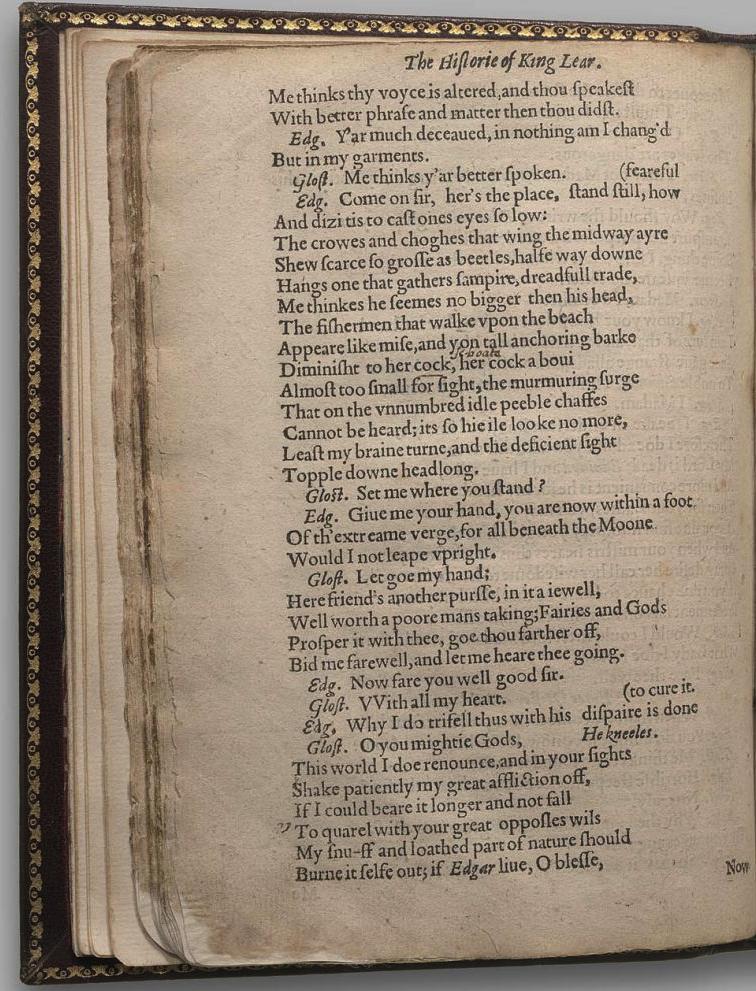 The Hiſtorie of King Lear.
Me thinks thy voyce is altered, and thou ſpeakeſt
With better phraſe and matter then thou didſt.
Edg. Y'ar much deceaued, in nothing am I chang'd
But in my garments.
Gloſt. Me thinks y'ar better ſpoken. (feareful
Edg. Come on ſir, her's the place, ſtand ſtill, how
And dizi tis to caſt ones eyes ſo low:
The crowes and choghes that wing the midway ayre
Shew ſcarce ſo groſſe as beetles, halfe way downe
Hangs one that gathers ſampire, dreadfull trade,
Me thinkes he ſeemes no bigger then his head,
The fiſhermen that walke vpon the beach
Appeare like miſe, and yon tall anchoring barke
Diminiſht to her cock, her cock a boui
Almoſt too ſmall for ſight, the murmuring ſurge
That on the vnnumbred idle peeble chaffes
Cannot be heard; its ſo hie ile looke no more,
Leaſt my braine turne, and the deficient ſight
Topple downe headlong.
Gloſt. Set me where you ſtand ?
Edg. Giue me your hand, you are now within a foot
Of th'extreame verge, for all beneath the Moone
Would I not leape vpright.
Gloſt. Let goe my hand;
Here friend's another purſſe, in it a iewell,
Well worth a poore mans taking; Fairies and Gods
Proſper it with thee, goe thou farther off,
Bid me farewell, and let me heare thee going.
Edg. Now fare you well good ſir.
Gloſt. VVith all my heart. (to cure it.
Edg, Why I do trifell thus with his diſpaire is done
Gloſt. O you mightie Gods, He kneeles.
This world I doe renounce, and in your ſights
Shake patiently my great affliction off,
If I could beare it longer and not fall
To quarel with your great oppoſles wils
My ſnu-ff and loathed part of nature ſhould
Burne it ſelfe out; if Edgar liue, O bleſſe,
Now